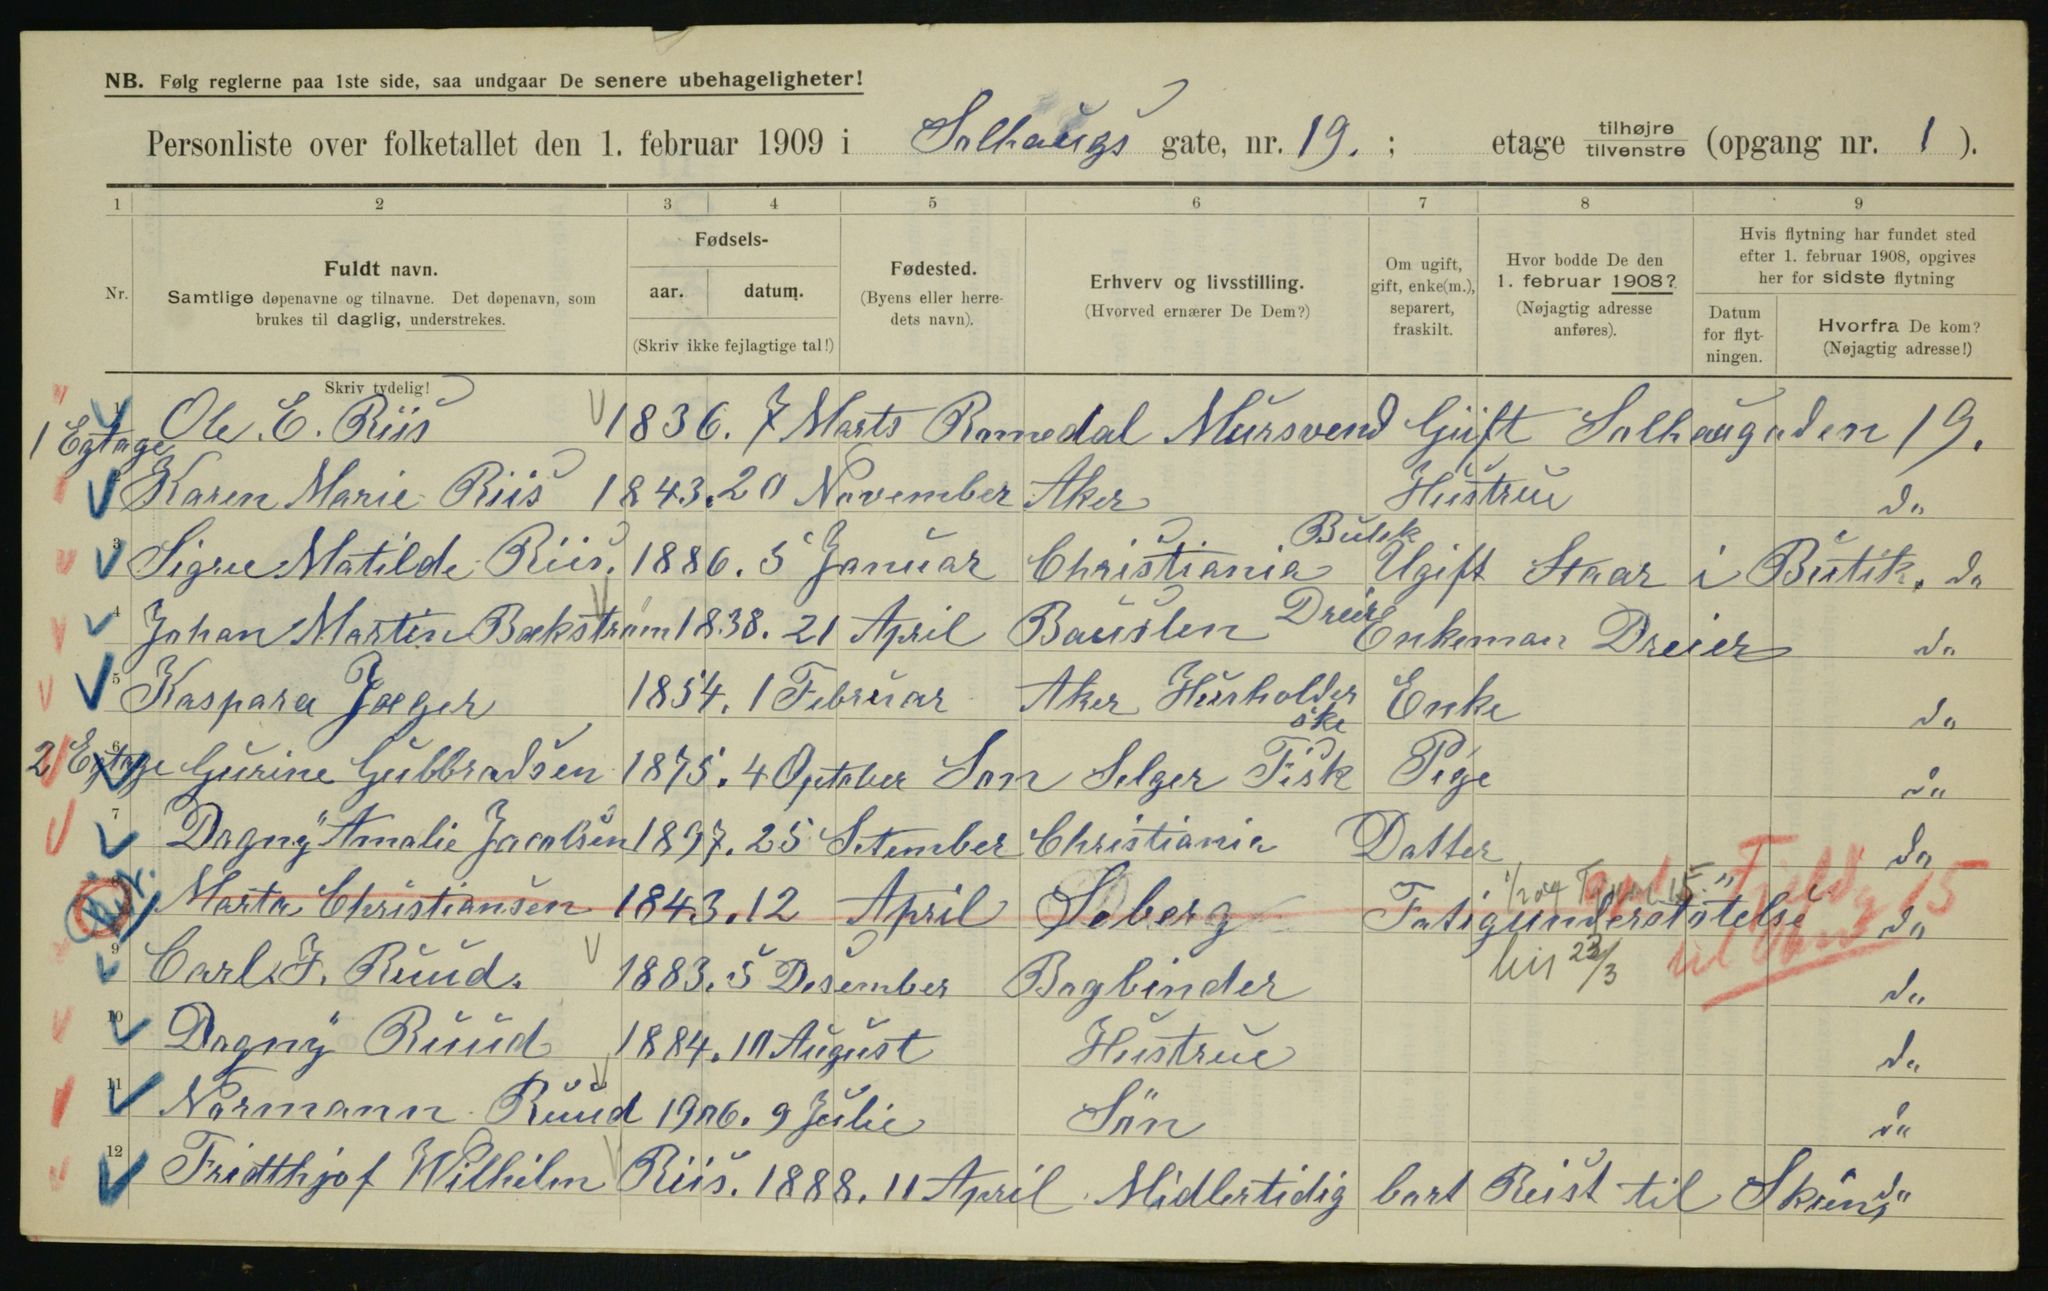 NB. Følg reglerne paa 1ste side, saa undgaar De senere ubehageligheter!
Personliste over folketallet den 1. februar 1909 i Solhaugs gate, nr. 19. ; etage tilhøjre tilvenstre (opgang nr. 1 ).
1 2 3 4 5 6 7 8 9
Nr.
Fuldt navn.
Samtlige døpenavne og tilnavne. Det døpenavn, som
brukes til daglig, understrekes.
Skriv tydelig!
Fødsels-
aar. datum.
(Skriv ikke fejlagtige tal!)
Fødested.
(Byens eller herre-
dets navn).
Erhverv og livsstilling.
(Hvorved ernærer De Dem?)
Om ugift,
gift, enke(m.),
separert,
fraskilt.
Hvor bodde De den
1. februar 1908?
(Nøjagtig adresse
anføres).
Hvis flytning har fundet sted
efter 1. februar 1908, opgives
her for sidste flytning
Datum
for flyt-
ningen.
Hvorfra De kom?
(Nøjagtig adresse!)
1 Egtage
1 Ole. E. Riis 1836. 7 Marts Romedal Mursvend Gift Solhaugaden 19.
2 Karen Marie Riis 1843. 20 November Aker Hustrue do
3 Sigru Matilde Riis. 1886. 5 Januar Christiania Butik Ugift Staar i Butik. do
4 Johan Martin Bækstrøm 1838. 21 April Bauslen Dreir Enkeman Dreier do
5 Kaspara Jæger 1854. 1 Februar Aker Husholderske Enke do
2 Egtage
6 Gurine Gubbradsen 1875. 4 Optober Son Selger Fisk Pige do
7 Dagny Amalie Jacobsen 1897. 25 Setember Christiania Datter do
8 Marta Christiansen 1843. 12 April Soberg Fatigunderstøtelse do
9 Carl. F. Ruud. 1883. 5 Desember Bogbinder do
23/3
10 Dagny Ruud 1884. 10 August Hustrue do
11 Normann Ruud 1906. 9 Julie Søn do
12 Fridthjof Wilhelm Riis. 1888. 11 April Midlertidig bort Reist til Skien, do